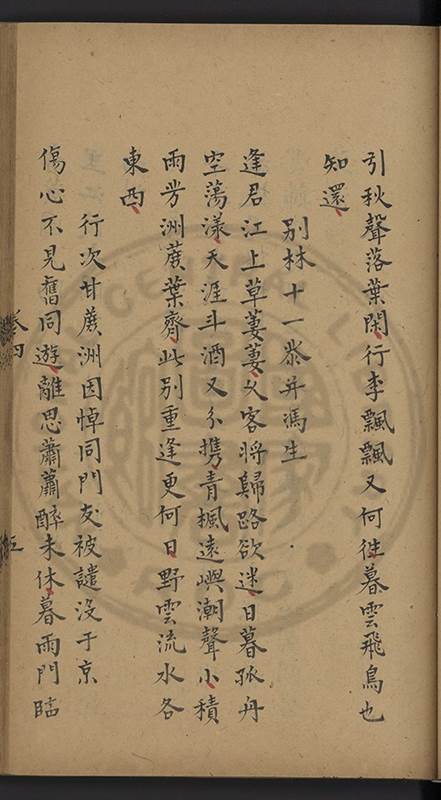 引秋聲落葉閑行李飄飄又何徃暮雲飛鳥也
知還
別林十一恭并馮生
逢君江上草萋萋久客將歸路欲迷日暮孤舟
空蕩漾天涯斗酒又分携青楓遠嶼潮聲小積
雨芳洲蔗葉齊此別重逢更何日野雲流水各
東西
行次甘蔗洲因悼同門友被譴沒于京
傷心不見舊同遊離思蕭蕭醉未休暮雨門臨